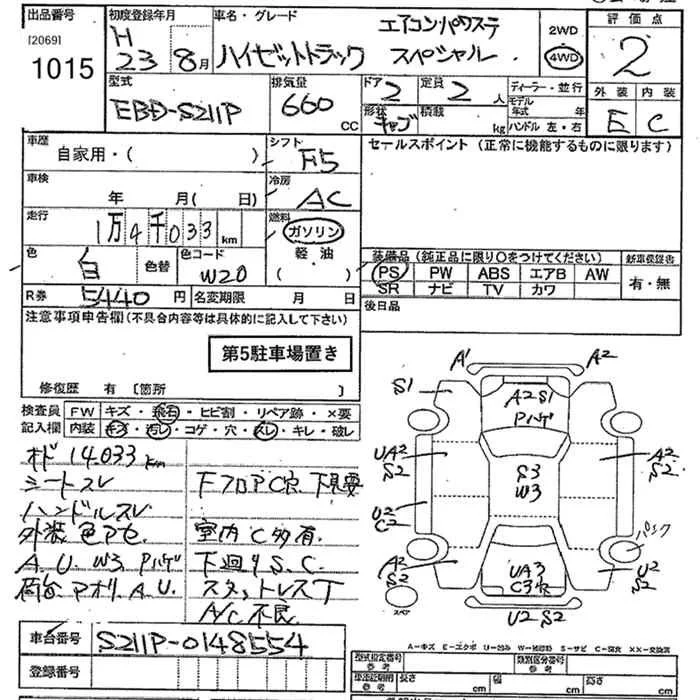 出品番号 初度登録年月 車名・グレード エアコン・パワステ 2WD 評価点
[2069] H
1015 23 8月 ハイゼットトラック スペシャル 4WD 2
型式 排気量 ドア 定員 ディーラー・並行 外装 内装
EBD-S211P 660 CC 2 2 人 モデル年式 年
形状 キャブ 積載 kg ハンドル 左・右 E C
車歴 シフト セールスポイント (正常に機能するものに限ります)
自家用・( ) F5
車検 冷房
年 月( 日) AC
走行 燃料
1万4千033 km ガソリン
色 色コード 軽油 装備品 (純正品に限り○をつけてください) 新車保証書
白 色替 W20 ( ) PS PW ABS エアB AW 有・無
SR ナビ TV カワ
R券 5440 円 名変期限 月 日 後日品
注意事項申告欄(不具合内容等は具体的に記入して下さい)
第5駐車場置き
修復歴 有 〔箇所 〕
検査員 FW キズ・飛石・ヒビ割・リペア跡・×要
記入欄 内装 キズ・汚レ・コゲ・穴・スレ・キレ・破レ
オド 14,033 km
シートスレ
ハンドルスレ
外装色アセ
A.U. W3 Pハゲ
荷台 アオリ A.U.
下フロアC食 下見要
室内 C多有
下廻りS.C.
スタットレスT
A/C不良
A1 A2
S1 A2S1
Pハゲ
UA2 S2 S3 W3 A2 S2
U2 C2 パンク
A2 S2 UA3 U2 S2
U2 S2
スペア
A-キズ E-エクボ U-凹み W-補修跡 S-サビ C-腐食 XX-交換済
車台番号 S211P-0148554
登録番号
型式指定番号 参考 類別区分番号 参考
車体諸元 参考 長さ cm 幅 cm 高さ cm